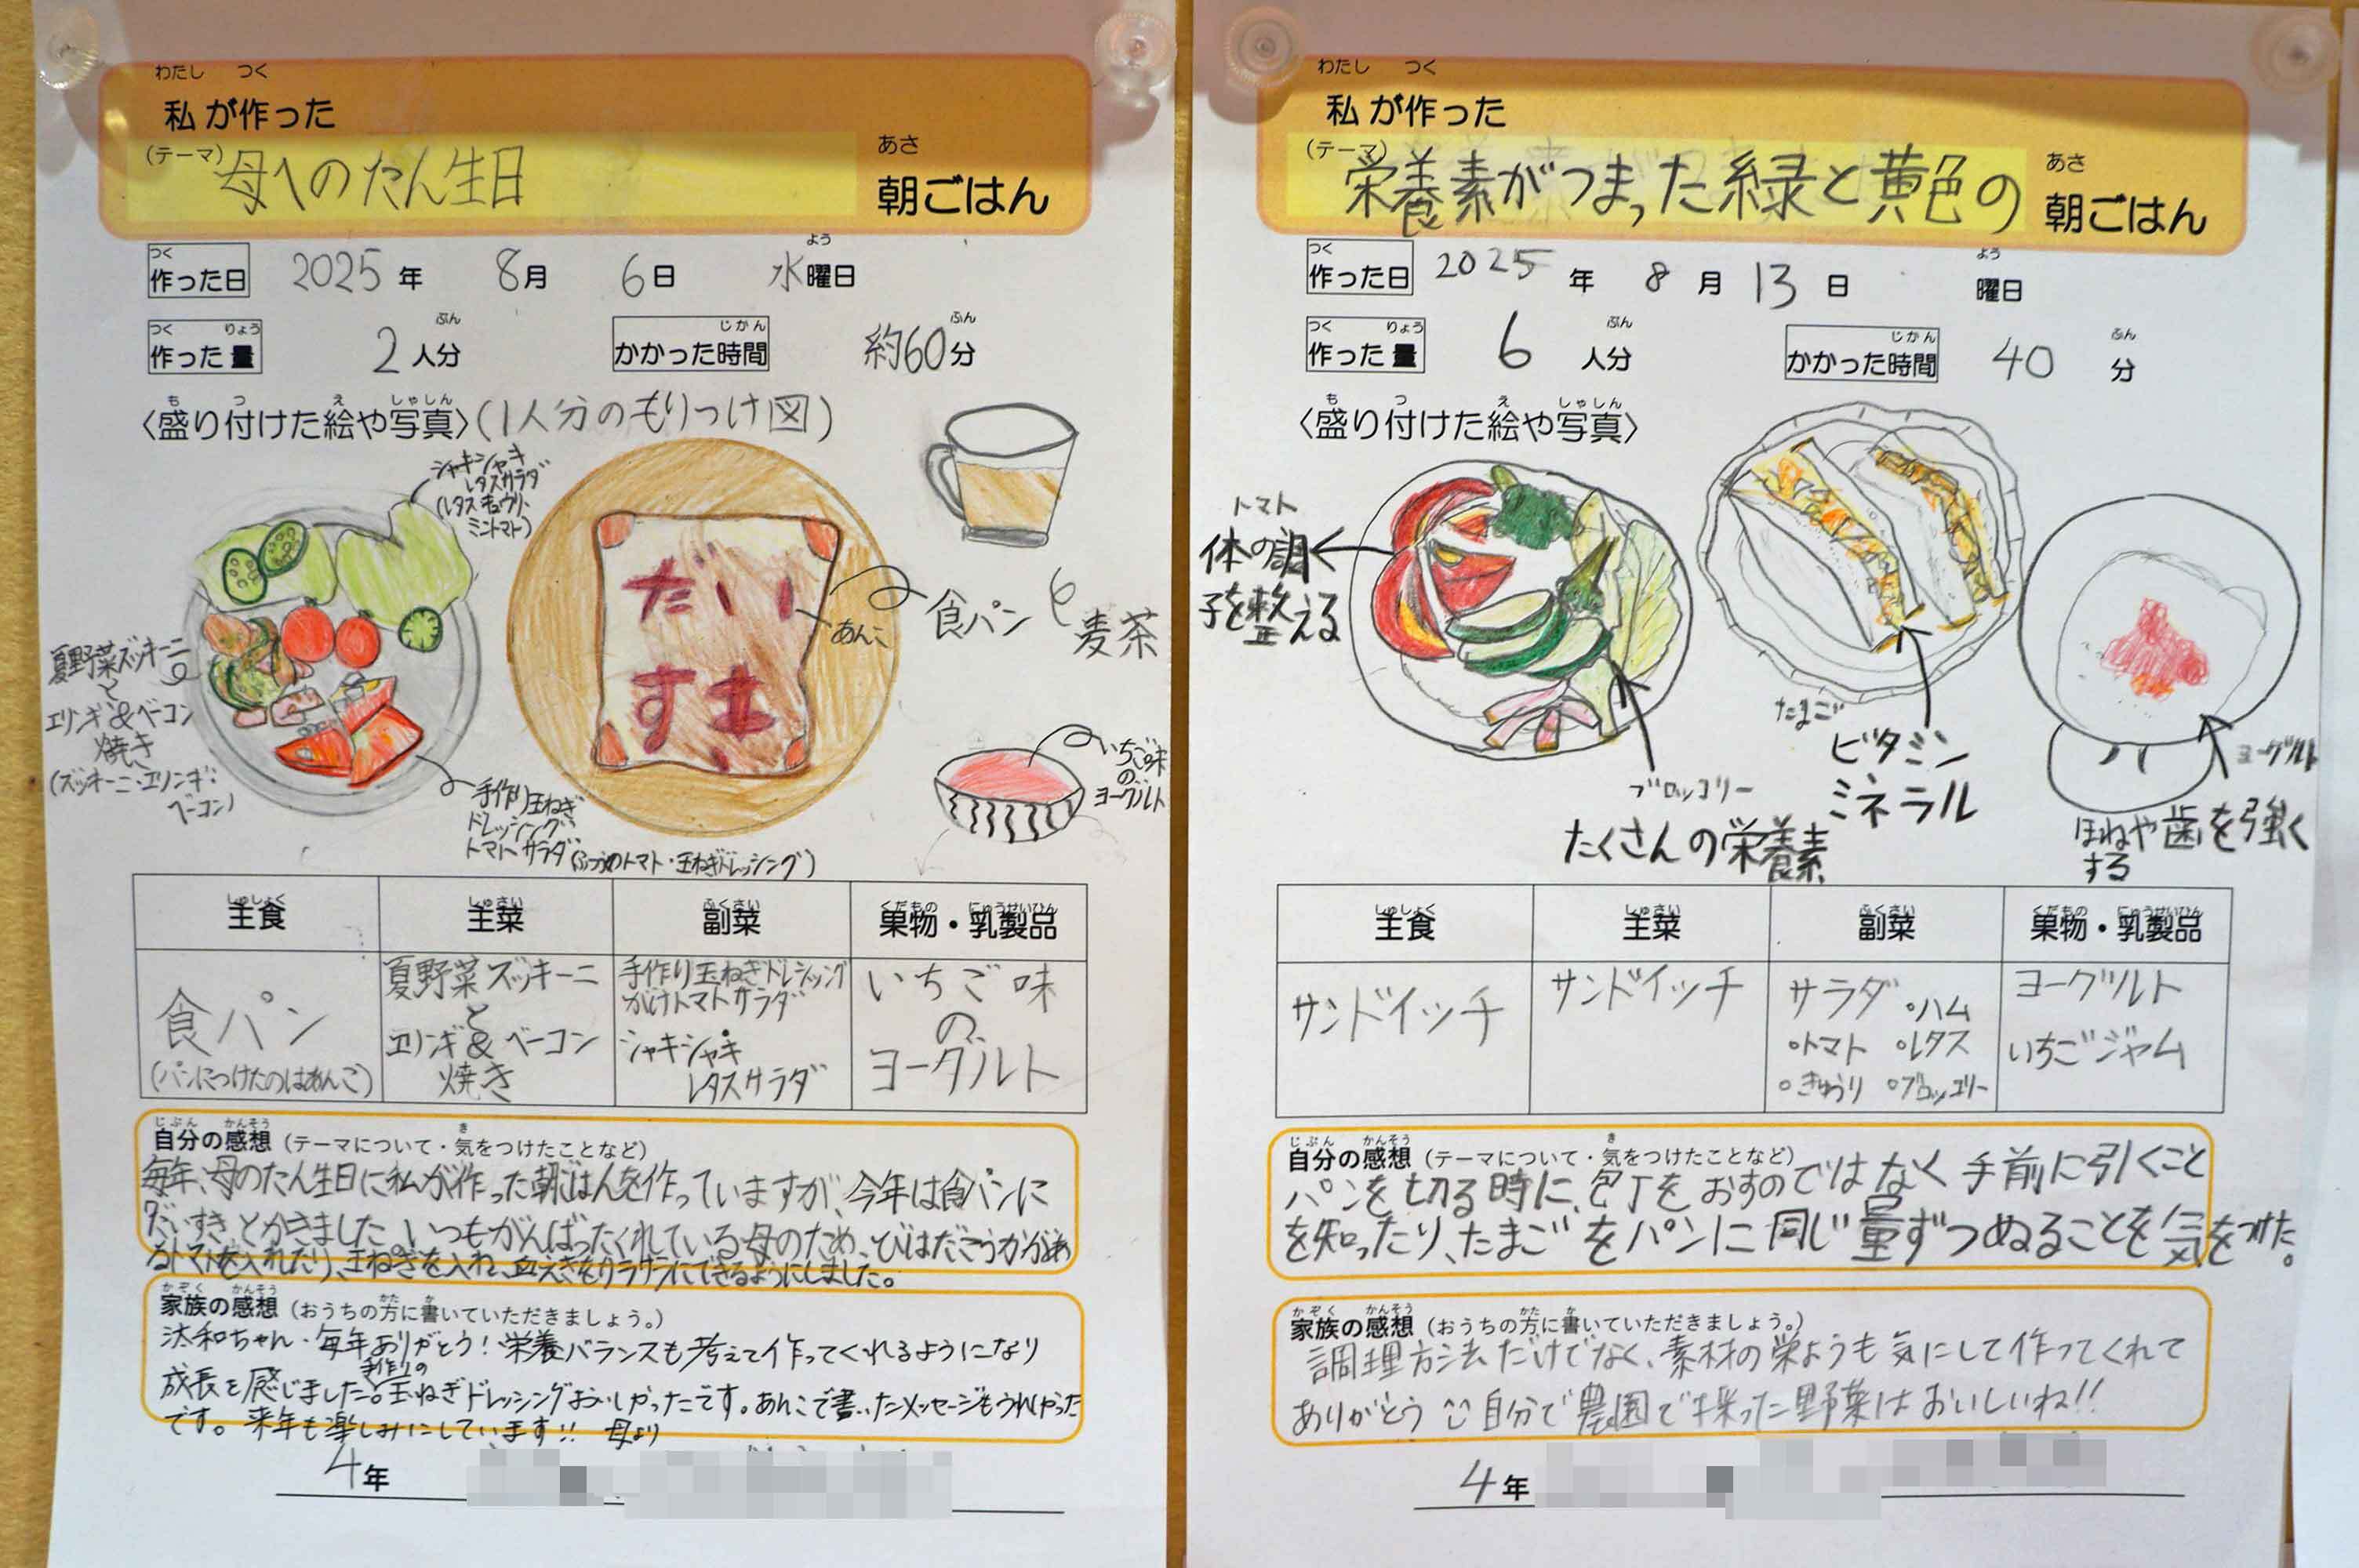 わたし つく
私が作った
(テーマ) 母へのたん生日
あさ
朝ごはん
つく
作った日 2025年 8月 6日 水曜日
よう
つく りょう
作った量 2人分
ぶん
じかん
かかった時間 約60分
ふん
も つ え しゃしん
〈盛り付けた絵や写真〉(1人分のもりつけ図)
シャキシャキ
レタスサラダ
(レタス・キュウリ・
ミニトマト)
だい
すき
あんこ
食パン
麦茶
夏野菜ズッキーニ
と
エリンギ&ベーコン
焼き
(ズッキーニ・エリンギ・
ベーコン)
いちご味
の
ヨーグルト
手作り玉ねぎ
ドレッシング
トマトサラダ(ふつうのトマト・玉ねぎドレッシング)
しゅしょく しゅさい ふくさい くだもの にゅうせいひん
主食 主菜 副菜 果物・乳製品
食パン
(パンにつけたのはあんこ)
夏野菜ズッキーニ
と
エリンギ&ベーコン
焼き
手作り玉ねぎドレッシング
がけトマトサラダ
シャキシャキ
レタスサラダ
いちご味
の
ヨーグルト
じぶん かんそう き
自分の感想(テーマについて・気をつけたことなど)
毎年、母のたん生日に私が作った朝ごはんを作っていますが、今年は食パンに
だいすきとかきました。いつもがんばってくれている母のため、びはだこうかがあ
るトマトを入れたり、玉ねぎを入れ、血えきをサラサラにできるようにしました。
かぞく かんそう かた か
家族の感想(おうちの方に書いていただきましょう。)
和ちゃん・毎年ありがとう!栄養バランスも考えて作ってくれるようになり
成長を感じました。手作りの玉ねぎドレッシングおいしかったです。あんこで書いたメッセージもうれしかった
です。来年も楽しみにしています!! 母より
4年
わたし つく
私が作った
(テーマ) 栄養素がつまった緑と黄色の
あさ
朝ごはん
つく
作った日 2025年 8月 13日 曜日
よう
つく りょう
作った量 6人分
ぶん
じかん
かかった時間 40分
ふん
も つ え しゃしん
〈盛り付けた絵や写真〉
トマト
体の調
子を整える
たまご
ビタミン
ミネラル
ブロッコリー
たくさんの栄養素
ヨーグルト
ほねや歯を強く
する
しゅしょく しゅさい ふくさい くだもの にゅうせいひん
主食 主菜 副菜 果物・乳製品
サンドイッチ
サンドイッチ
サラダ ・ハム
・トマト ・レタス
・きゅうり ・ブロッコリー
ヨーグルト
いちごジャム
じぶん かんそう き
自分の感想(テーマについて・気をつけたことなど)
パンを切る時に、包丁をおすのではなく手前に引くこと
を知ったり、たまごをパンに同じ量ずつぬることを気をつけた。
かぞく かんそう かた か
家族の感想(おうちの方に書いていただきましょう。)
調理方法だけでなく、素材の栄ようも気にして作ってくれて
ありがとう 自分で農園で採った野菜はおいしいね!!
4年